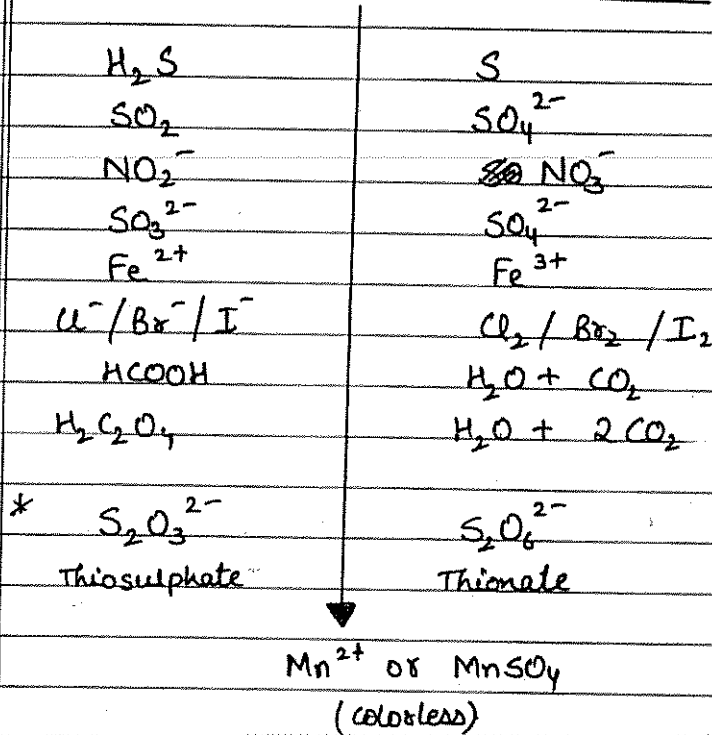 H₂S S
SO₂ SO₄²⁻
NO₂⁻ NO₃⁻
SO₃²⁻ SO₄²⁻
Fe²⁺ Fe³⁺
Cl⁻/Br⁻/I⁻ Cl₂/Br₂/I₂
HCOOH H₂O + CO₂
H₂C₂O₄ H₂O + 2CO₂
* S₂O₃²⁻ S₂O₆²⁻
Thiosulphate Thionate
Mn²⁺ or MnSO₄
(colorless)